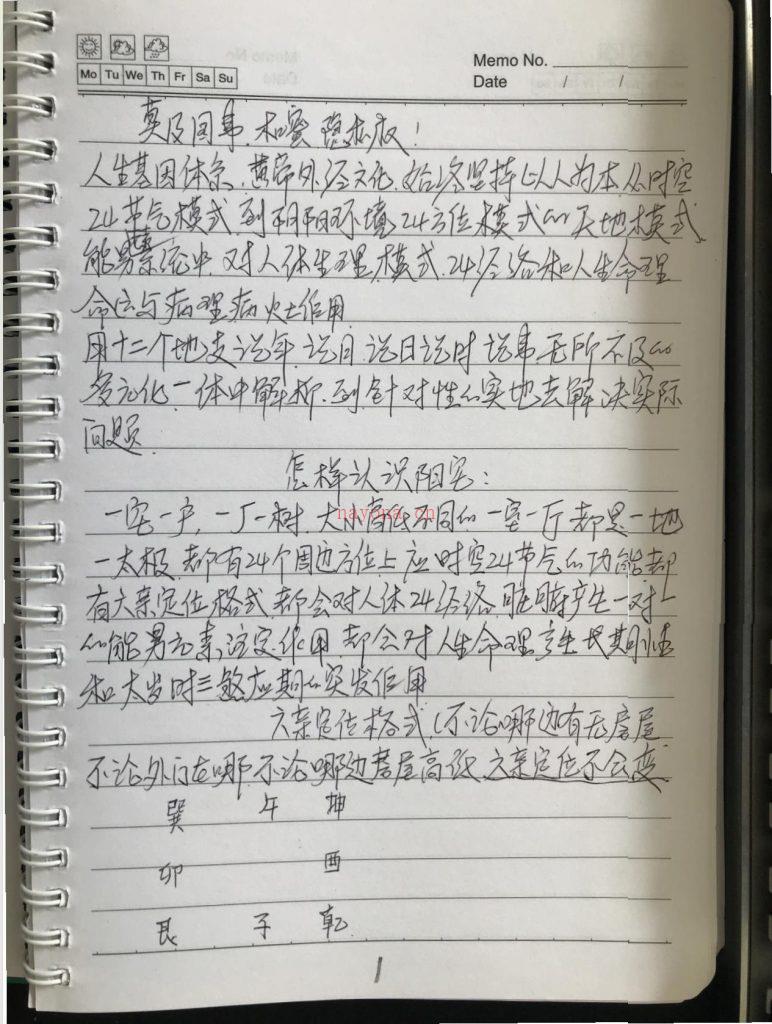 Memo No.
Mo Tu We Th Fr Sa Su
Date / /
人生基因体系, 黄帝外经文化, 始终坚持以人为本, 从时空
24节气模式到阴阳环境24方位模式的天地模式
能量系统中, 对人体生理模式, 24经络和人生命理
命运与病理病灶作用
用十二个地支说年, 说月, 说日说时说事, 无所不及的
多元化一体中解析, 到针对性的实地去解决实际
问题
怎样认识阳宅:
一宅一户, 一厂一树, 大小高低不同的一室一厅都是一地
一太极, 都有24个周边方位上应时空24节气的功能都
有六亲定位格式, 都会对人体24经络, 脏腑产生一对一
的能量元素注定作用, 都会对人生命理产生长期性
和太岁时三煞应期的突发作用
六亲定位格式 (不论哪边有无房屋
不论外门在哪, 不论哪边房屋高低, 六亲定位不会变
巽 午 坤
卯 酉
艮 子 乾
1
nayona.cn